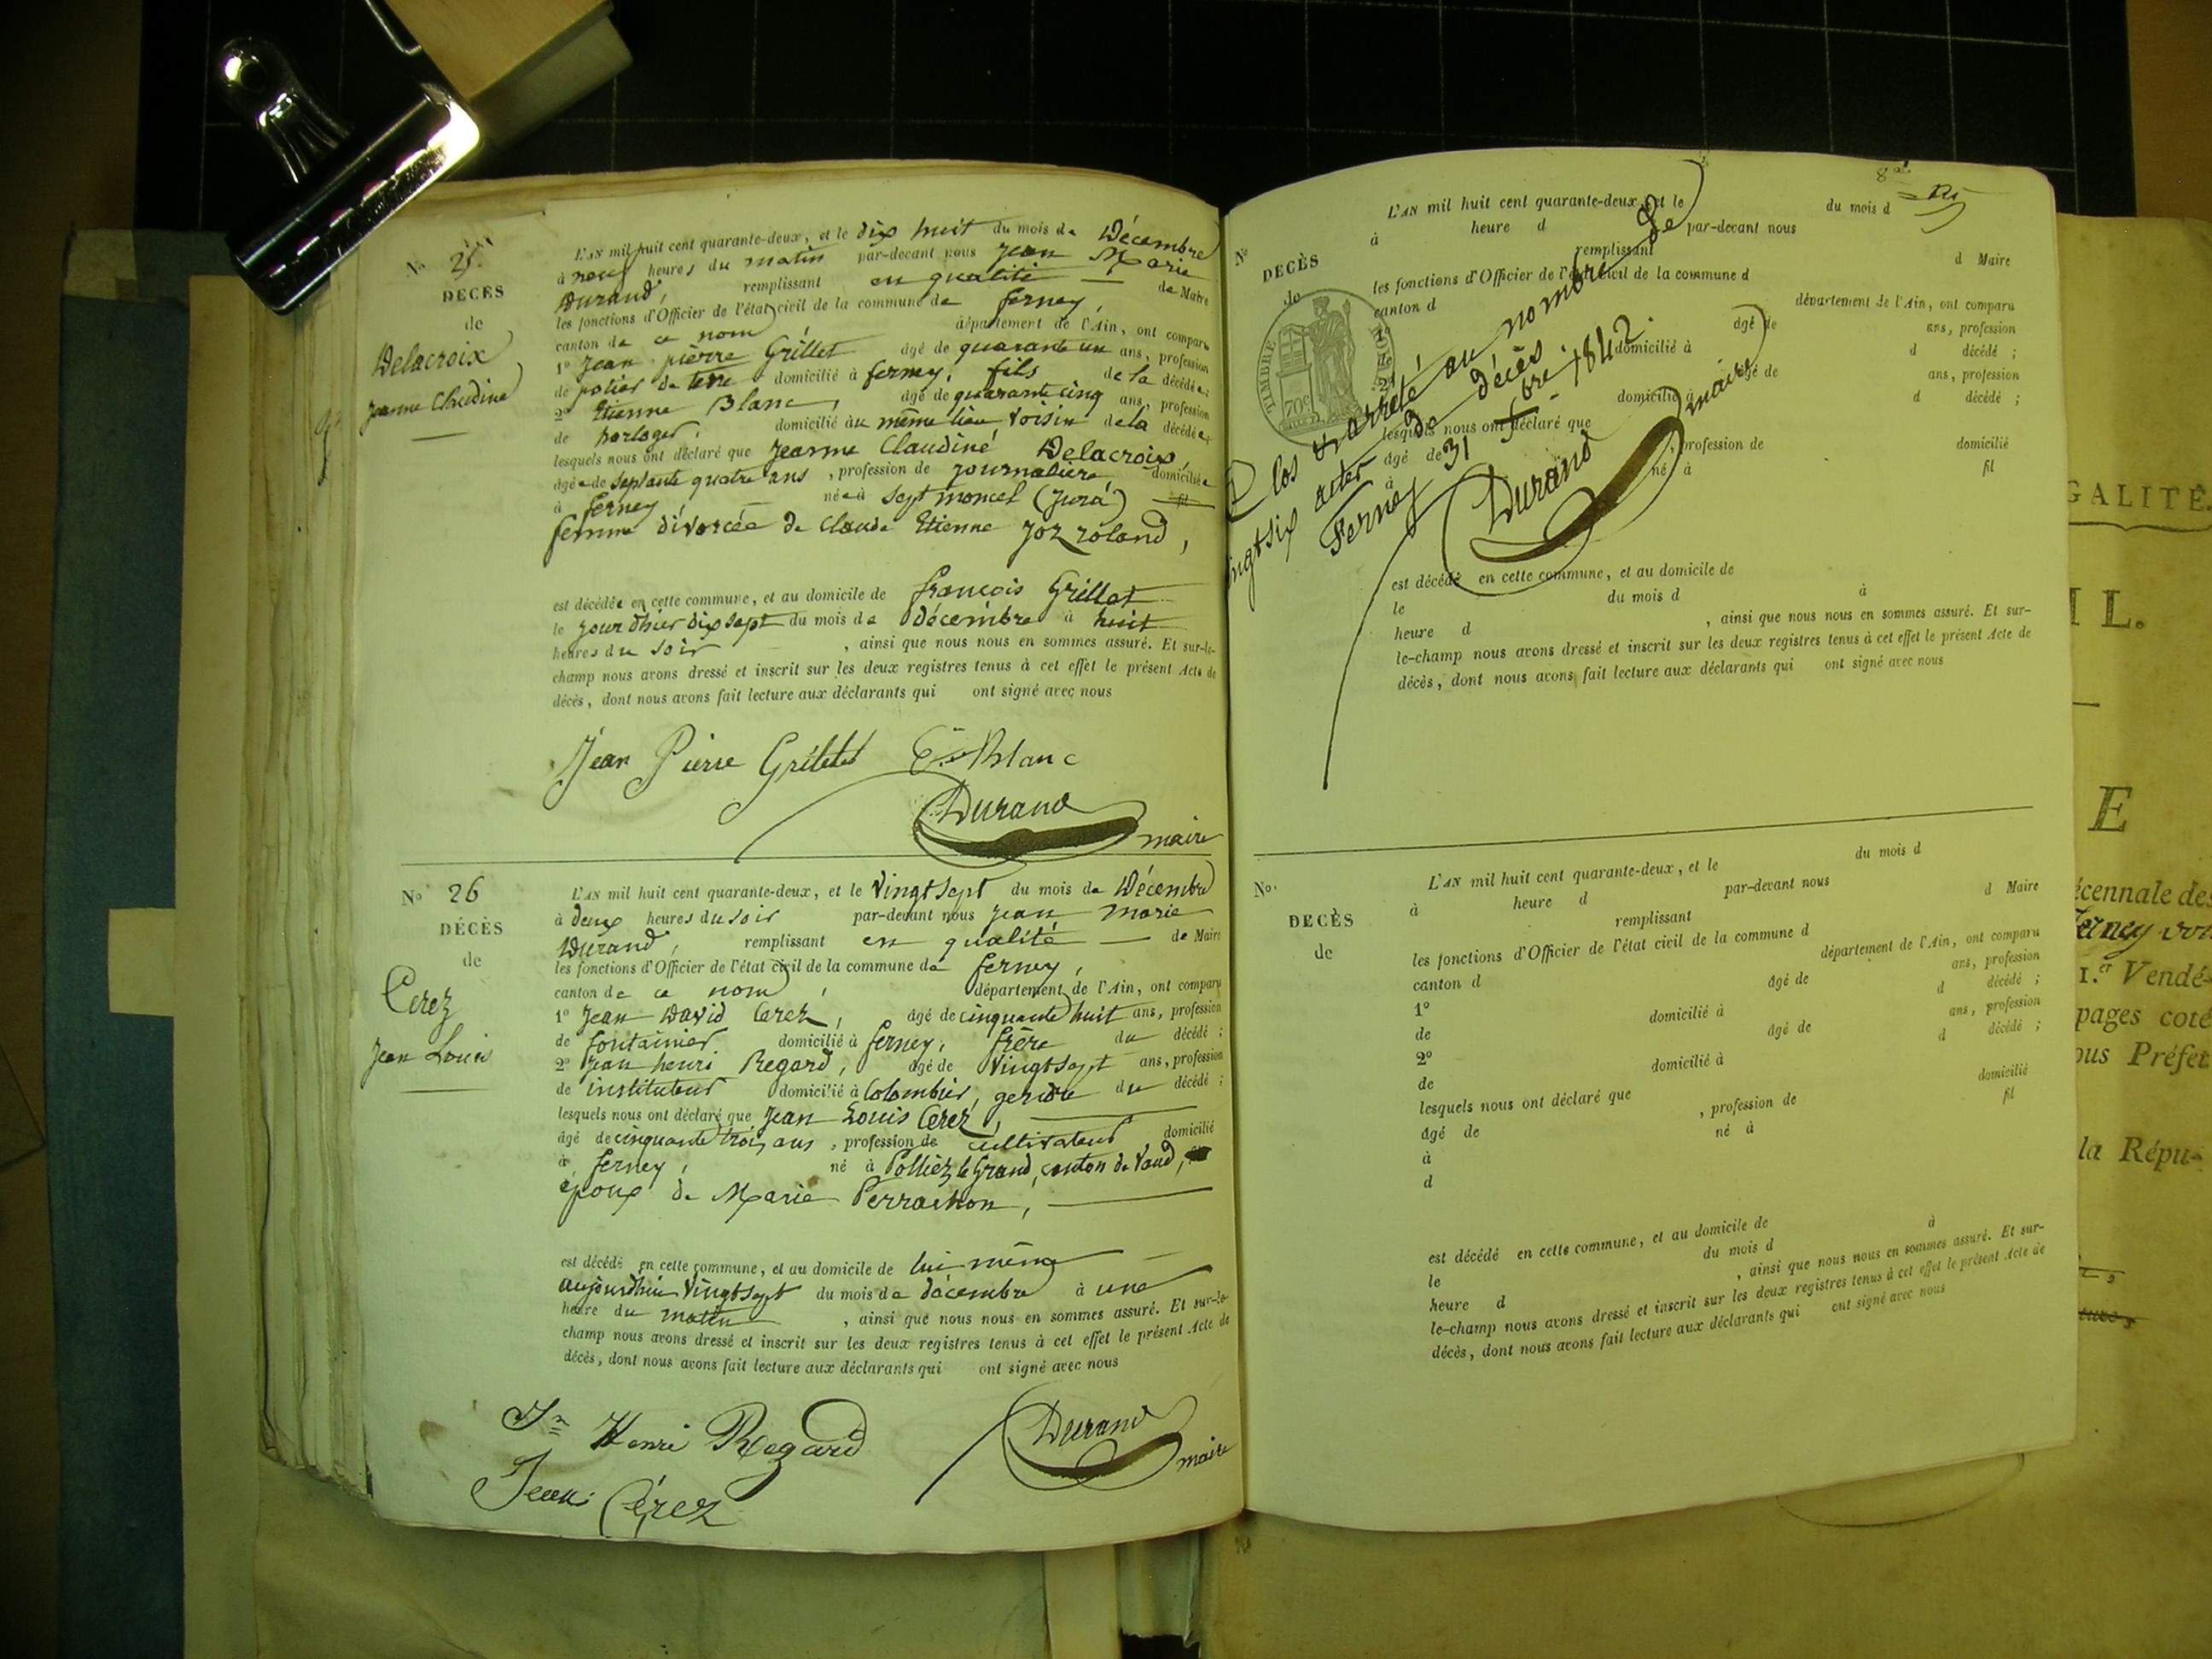 No 25.
DÉCÈS
de
Delacroix
Jeanne Claudine
L'AN mil huit cent quarante-deux, et le dix huit du mois de Décembre
à neuf heures du matin par-devant nous Jean Marie
Durand, remplissant en qualité de Maire
les fonctions d'Officier de l'état civil de la commune de ferney,
canton de ce nom département de l'Ain, ont comparu
1o Jean pierre Grillet âgé de quarante un ans, profession
de potier de terre domicilié à ferney, fils de la décédée;
2o Etienne Blanc, âgé de quarante cinq ans, profession
de horloger, domicilié au même lieu voisin de la décédée;
lesquels nous ont déclaré que Jeanne Claudine Delacroix,
âgée de septante quatre ans, profession de journalière domiciliée
à ferney née à Septmoncel (Jura) fil
femme divorcée de Claude Etienne Joz roland,
est décédée en cette commune, et au domicile de françois Grillet
le jour d'hier dix sept du mois de décembre à huit
heures du soir, ainsi que nous nous en sommes assuré. Et sur-le-
champ nous avons dressé et inscrit sur les deux registres tenus à cet effet le présent Acte de
décès, dont nous avons fait lecture aux déclarants qui ont signé avec nous
Jean Pierre Grillet Ene Blanc
Durand
maire
No 26
DÉCÈS
de
Cerez
Jean Louis
L'AN mil huit cent quarante-deux, et le vingt sept du mois de Décembre
à deux heures du soir par-devant nous Jean marie
Durand, remplissant en qualité de Maire
les fonctions d'Officier de l'état civil de la commune de ferney,
canton de ce nom, département de l'Ain, ont comparu
1o Jean David Cerez, âgé de cinquante huit ans, profession
de fontainier domicilié à ferney, frère du décédé;
2o Jean henri Regard, âgé de vingt sept ans, profession
de instituteur domicilié à Colombier, gendre du décédé;
lesquels nous ont déclaré que Jean Louis Cerez,
âgé de cinquante trois ans, profession de cultivateur domicilié
à ferney, né à Polliez le Grand, canton de Vaud,
époux de Marie Perrachon,
est décédé en cette commune, et au domicile de lui même
aujourdhui vingt sept du mois de décembre à une
heure du matin, ainsi que nous nous en sommes assuré. Et sur-le-
champ nous avons dressé et inscrit sur les deux registres tenus à cet effet le présent Acte de
décès, dont nous avons fait lecture aux déclarants qui ont signé avec nous
Jn Henri Regard
Durand
maire
Jean Cérez
No
DÉCÈS
de
TIMBRE ROYAL
70c
L'AN mil huit cent quarante-deux, et le du mois d
à heure d par-devant nous
remplissant d Maire
les fonctions d'Officier de l'état civil de la commune d
canton d département de l'Ain, ont comparu
1o âgé de ans, profession
de domicilié à d décédé;
2o âgé de ans, profession
domicilié à d décédé;
lesquels nous ont déclaré que
âgé de, profession de domicilié
à né à fil
Clos & arrêté au nombre de
vingt six actes de décès.
Ferney 31 Xbre 1842.
Durand maire
est décédé en cette commune, et au domicile de
le du mois d à
heure d, ainsi que nous nous en sommes assuré. Et sur-
le-champ nous avons dressé et inscrit sur les deux registres tenus à cet effet le présent Acte de
décès, dont nous avons fait lecture aux déclarants qui ont signé avec nous
No.
DÉCÈS
de
L'AN mil huit cent quarante-deux, et le du mois d
à heure d par-devant nous
remplissant d Maire
les fonctions d'Officier de l'état civil de la commune d
canton d département de l'Ain, ont comparu
1o âgé de ans, profession
de domicilié à d décédé;
2o âgé de ans, profession
de domicilié à d décédé;
lesquels nous ont déclaré que
âgé de, profession de domicilié
à né à fil
d
est décédé en cette commune, et au domicile de
le du mois d à
heure d, ainsi que nous nous en sommes assuré. Et sur-
le-champ nous avons dressé et inscrit sur les deux registres tenus à cet effet le présent Acte de
décès, dont nous avons fait lecture aux déclarants qui ont signé avec nous
GALITÉ.
IL.
E
écennale des
ferney vol
1.er Vendé-
pages coté
ous Préfet
la Répu-